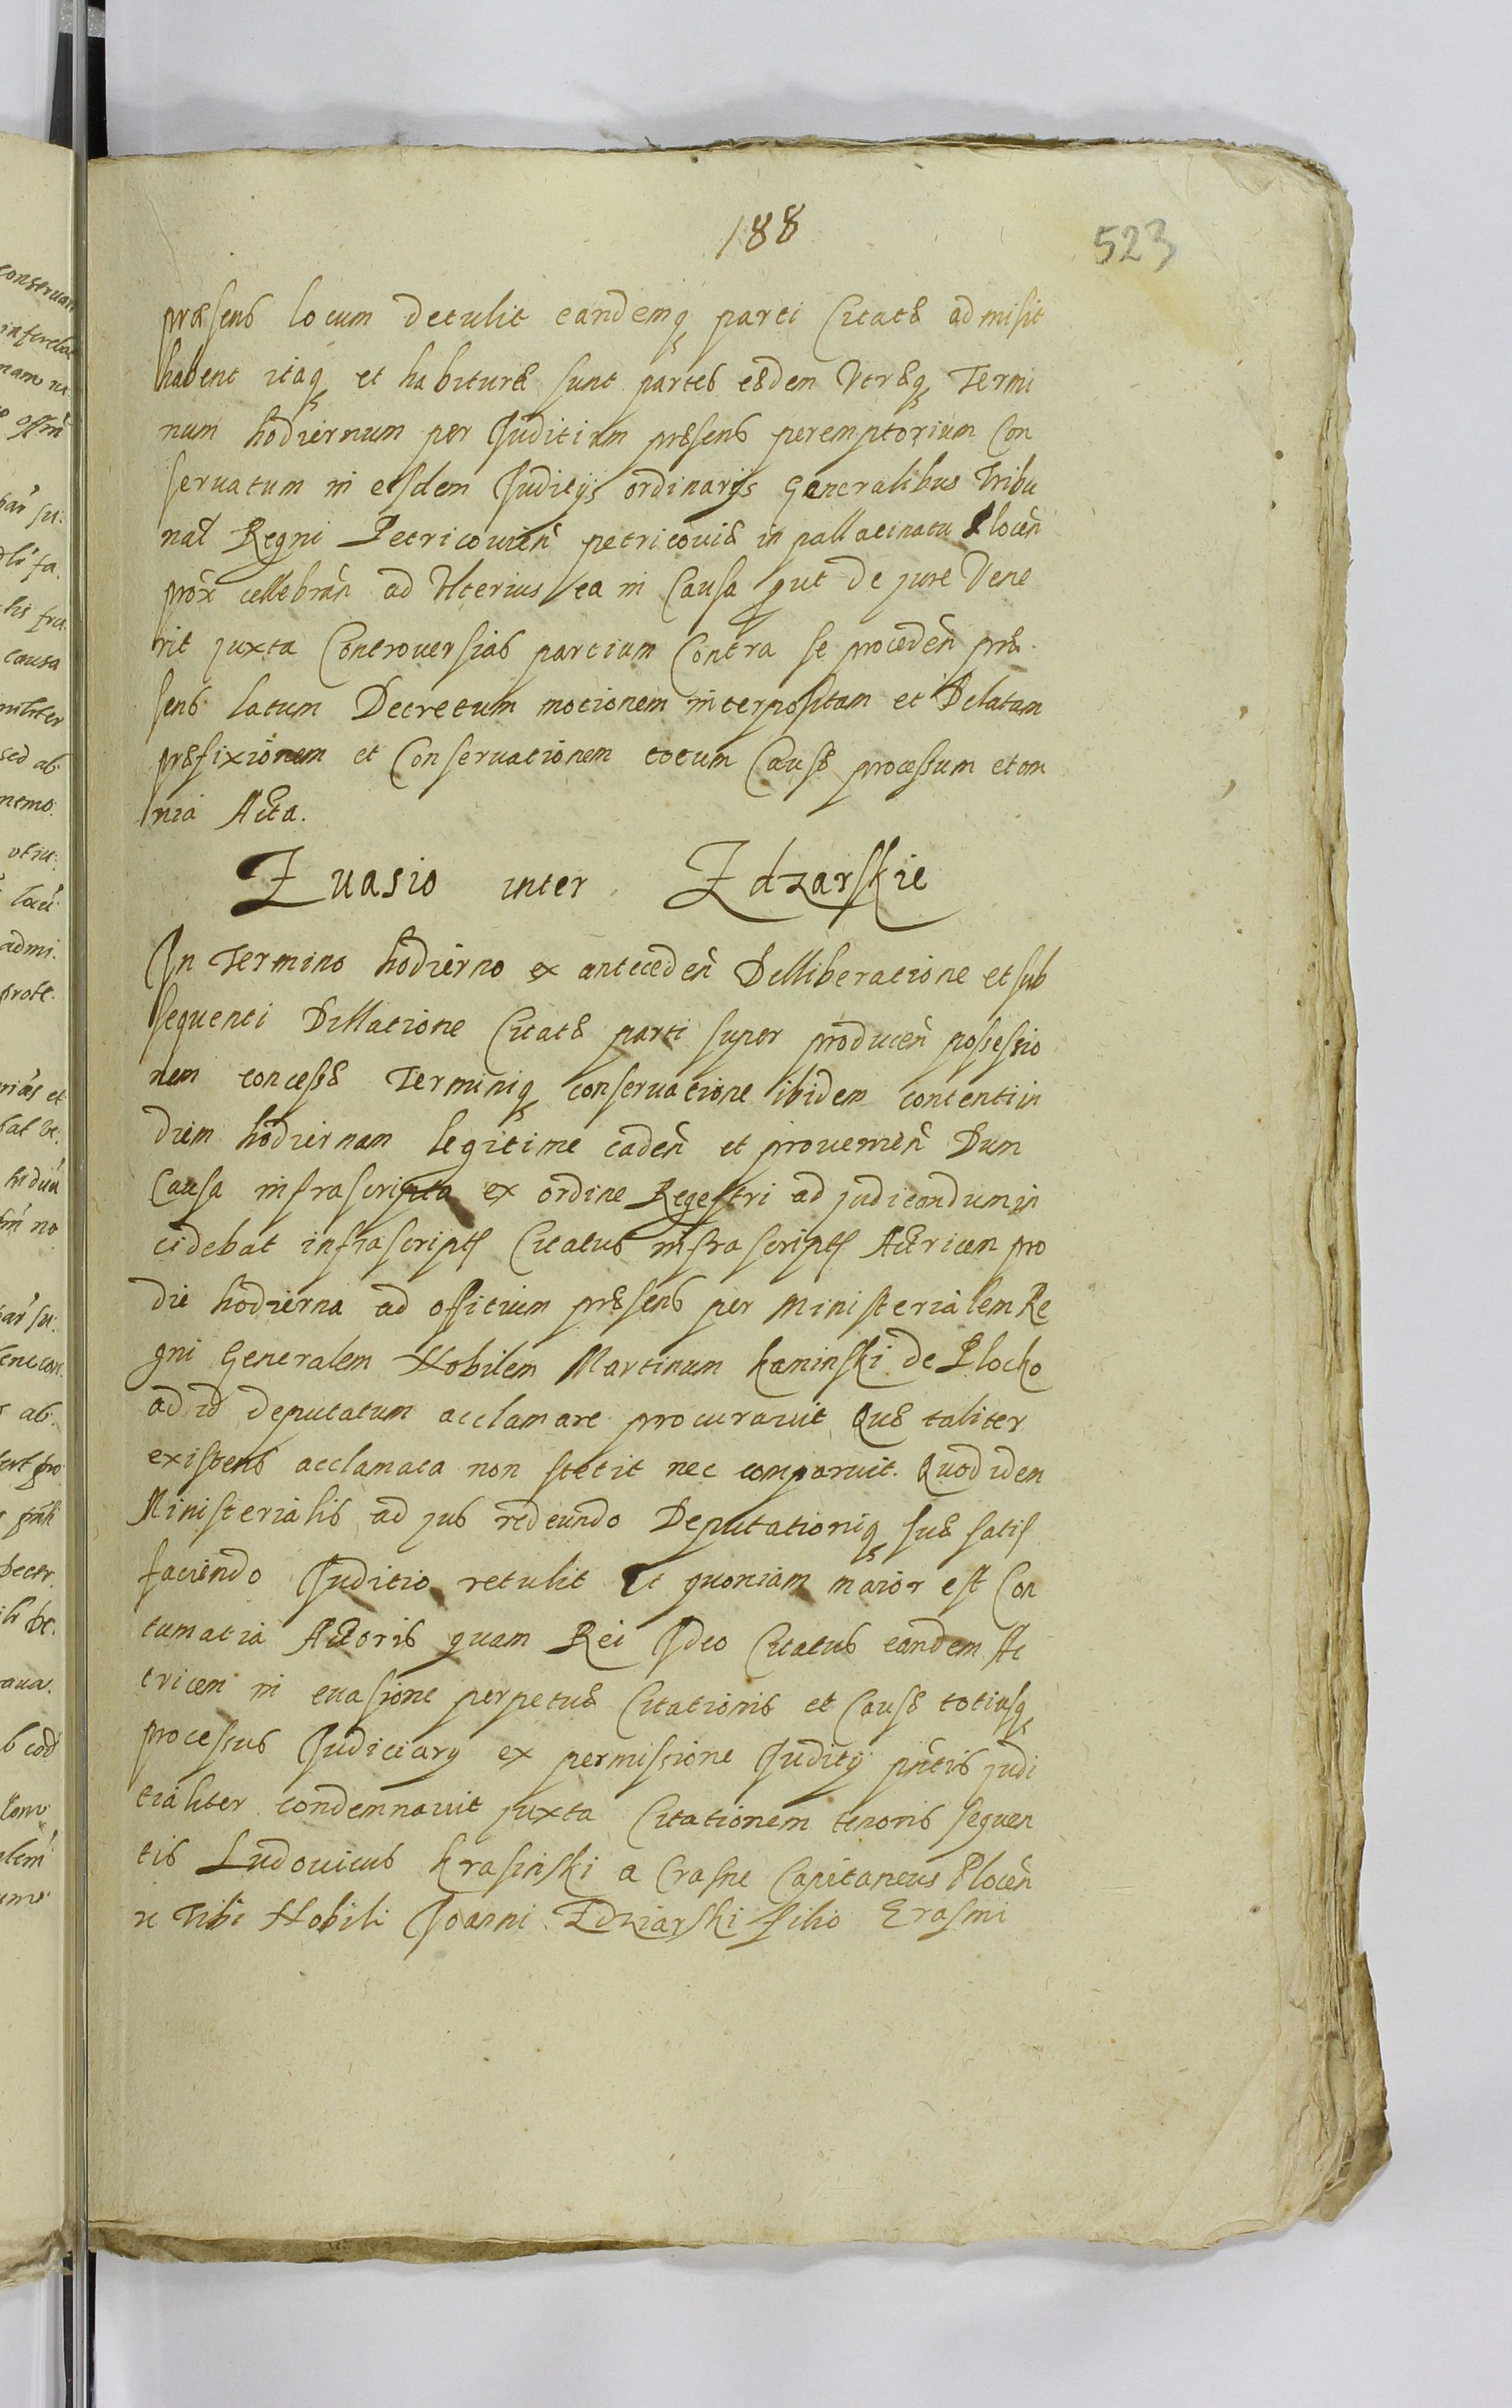 188
523
præsens locum detulit eandemq parti Citatæ admisit
habent itaq et habituræ sunt partes eædem Vtræq Termi
num hodiernum per Juditium præsens peremptorium Con
seruatum in eisdem Juditijs ordinarijs Generalibus Tribu
nal Regni Petricouień petricouiæ in pallatinatu Ploceń
prox cellebrań ad Vlterius ea in Causa put de jure Vene
rit juxta Controuersias partium Contra se procedeń præ
sens latum Decretum motionem interpositam et Delatam
præfixionem et Conseruationem totum Causæ processum et om
nia Acta.
Euasio inter Zdzarskie
In Termino hodierno ex antecedeń Delliberatione et sub
sequenti Dillatione Citatæ parti super produceń possessio
nem concessæ Terminiq conseruatione ibidem contenti in
diem hodiernam legitime cadeń et prouenień Dum
Causa infrascripta ex ordine Regestri ad judicandum in
cidebat infrascript Citatus infrascript Actricem pro
die hodierna ad officium præsens per Ministerialem Re
gni Generalem Nobilem Martinum Kaminski de Plocko
ad id deputatum acclamare procurauit Quæ taliter
existens acclamata non stetit nec comparuit. Quod idem
Ministerialis ad jus redeundo Deputationiq suæ satis
faciendo Juditio retulit Et quoniam maior est Con
tumatia Actoris quam Rei Ideo Citatus eandem Ac
tricem in euasione perpetuæ Citationis et Causæ totiusq
processus Judiciary ex permissione Juditij pntis judi
tialiter condemnauit juxta Citationem tenoris sequen
tis Ludouicus Krasinski a Crasne Capitaneus Ploceń
rc Tibi Nobili Joanni Zdziarski filio Erasmi